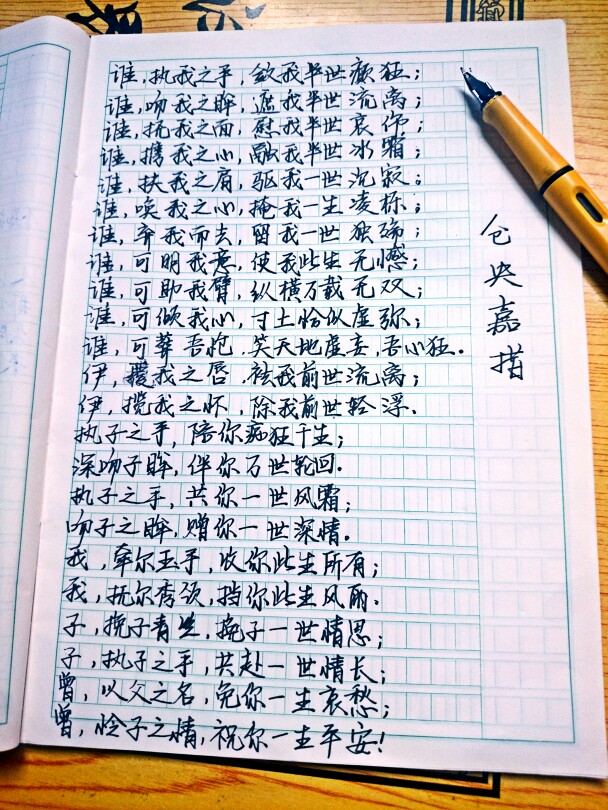 谁,执我之手,敛我半世癫狂;
谁,吻我之眸,遮我半世流离;
谁,抚我之面,慰我半世哀伤;
谁,携我之心,融我半世冰霜;
谁,扶我之肩,驱我一世沉寂。
谁,唤我之心,掩我一生凌轹;
谁,弃我而去,留我一世独殇;
谁,可明我意,使我此生无憾;
谁,可助我臂,纵横万载无双;
谁,可倾我心,寸土恰似虚弥;
谁,可葬吾怆,笑天地虚妄,吾心狂.
伊,覆我之唇,祛我前世流离;
伊,揽我之怀,除我前世轻浮.
执子之手,陪你痴狂千生;
深吻子眸,伴你万世轮回.
执子之手,共你一世风霜;
吻子之眸,赠你一世深情.
我,牵尔玉手,收你此生所有;
我,抚尔秀颈,挡你此生风雨.
子,挽子青丝,挽子一世情思;
子,执子之手,共赴一世情长;
曾,以父之名,免你一生哀愁;
曾,怜子之情,祝你一生平安!
仓央嘉措